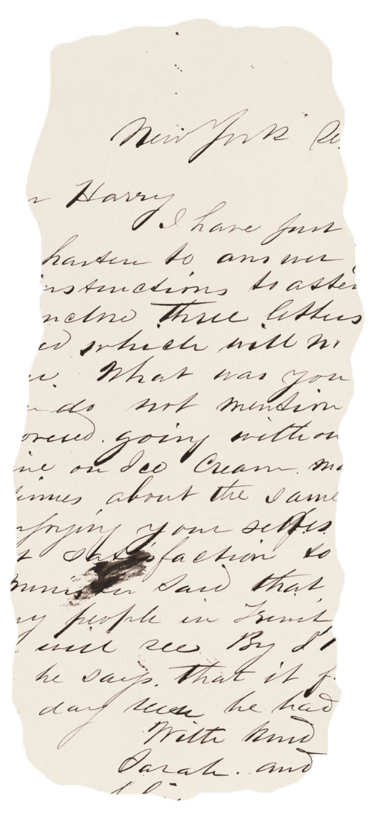 New York
Harry
I have just
hasten to answer
instructions to
three letters
which will
What was you
do not mention
going withou
on Ice Cream
times about the same
enjoying your selfes
satisfaction to
said that
people in Trinit
will see By
he says that it
day he had
With kind
Sarah. and